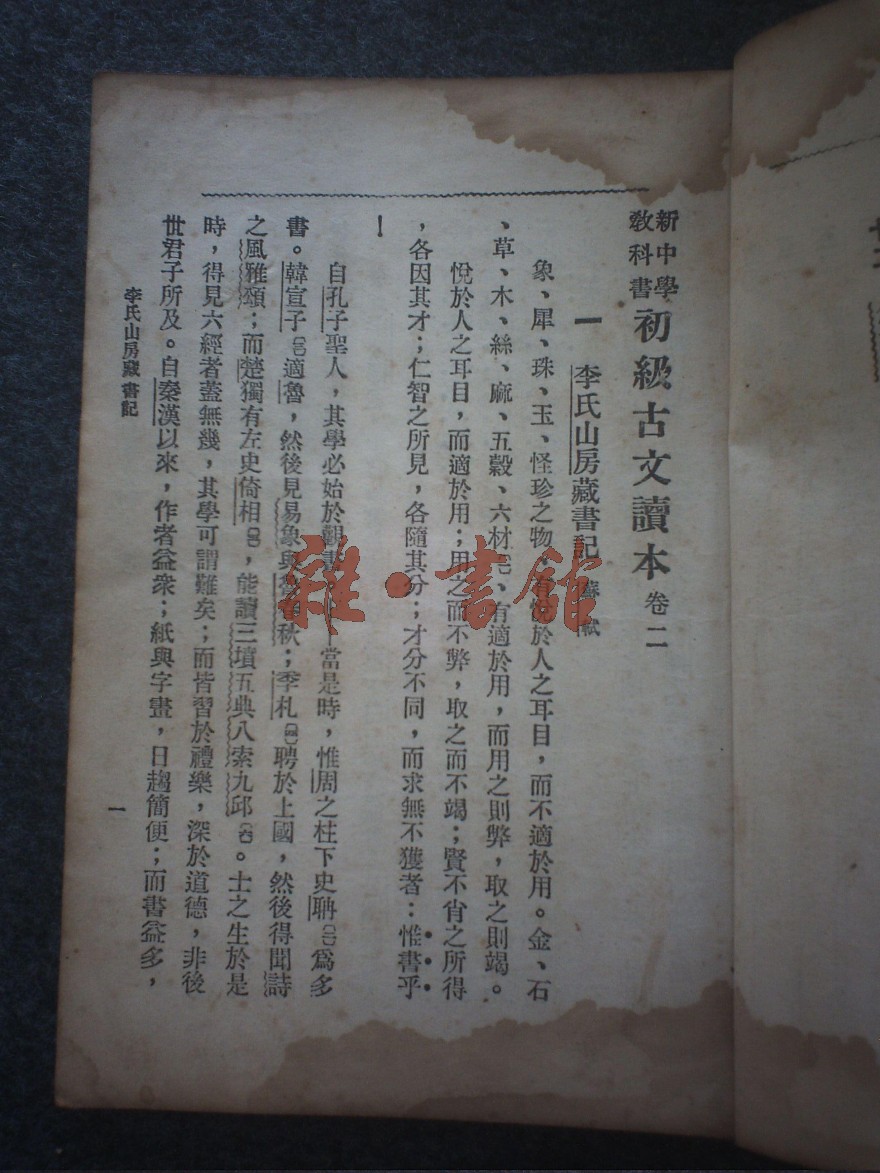 新中學教科書初級古文讀本 卷二
一 李氏山房藏書記 蘇軾
象、犀、珠、玉、怪珍之物，有悅於人之耳目，而不適於用。金、石
、草、木、絲、麻、五穀、六材㈠，有適於用，而用之則弊，取之則竭。
悅於人之耳目，而適於用；用之而不弊，取之而不竭；賢不肖之所得
，各因其才；仁智之所見，各隨其分；才分不同，而求無不獲者：惟書乎
！
自孔子聖人，其學必始於觀書。當是時，惟周之柱下史聃㈡爲多
書。韓宣子㈢適魯，然後見易象與魯春秋；季札㈣聘於上國，然後得聞詩
之風雅頌；而楚獨有左史倚相㈤，能讀三墳五典八索九邱㈥。士之生於是
時，得見六經者蓋無幾，其學可謂難矣；而皆習於禮樂，深於道德，非後
世君子所及。自秦漢以來，作者益衆；紙與字畫，日趨簡便；而書益多，
李氏山房藏書記
一
雜·書館